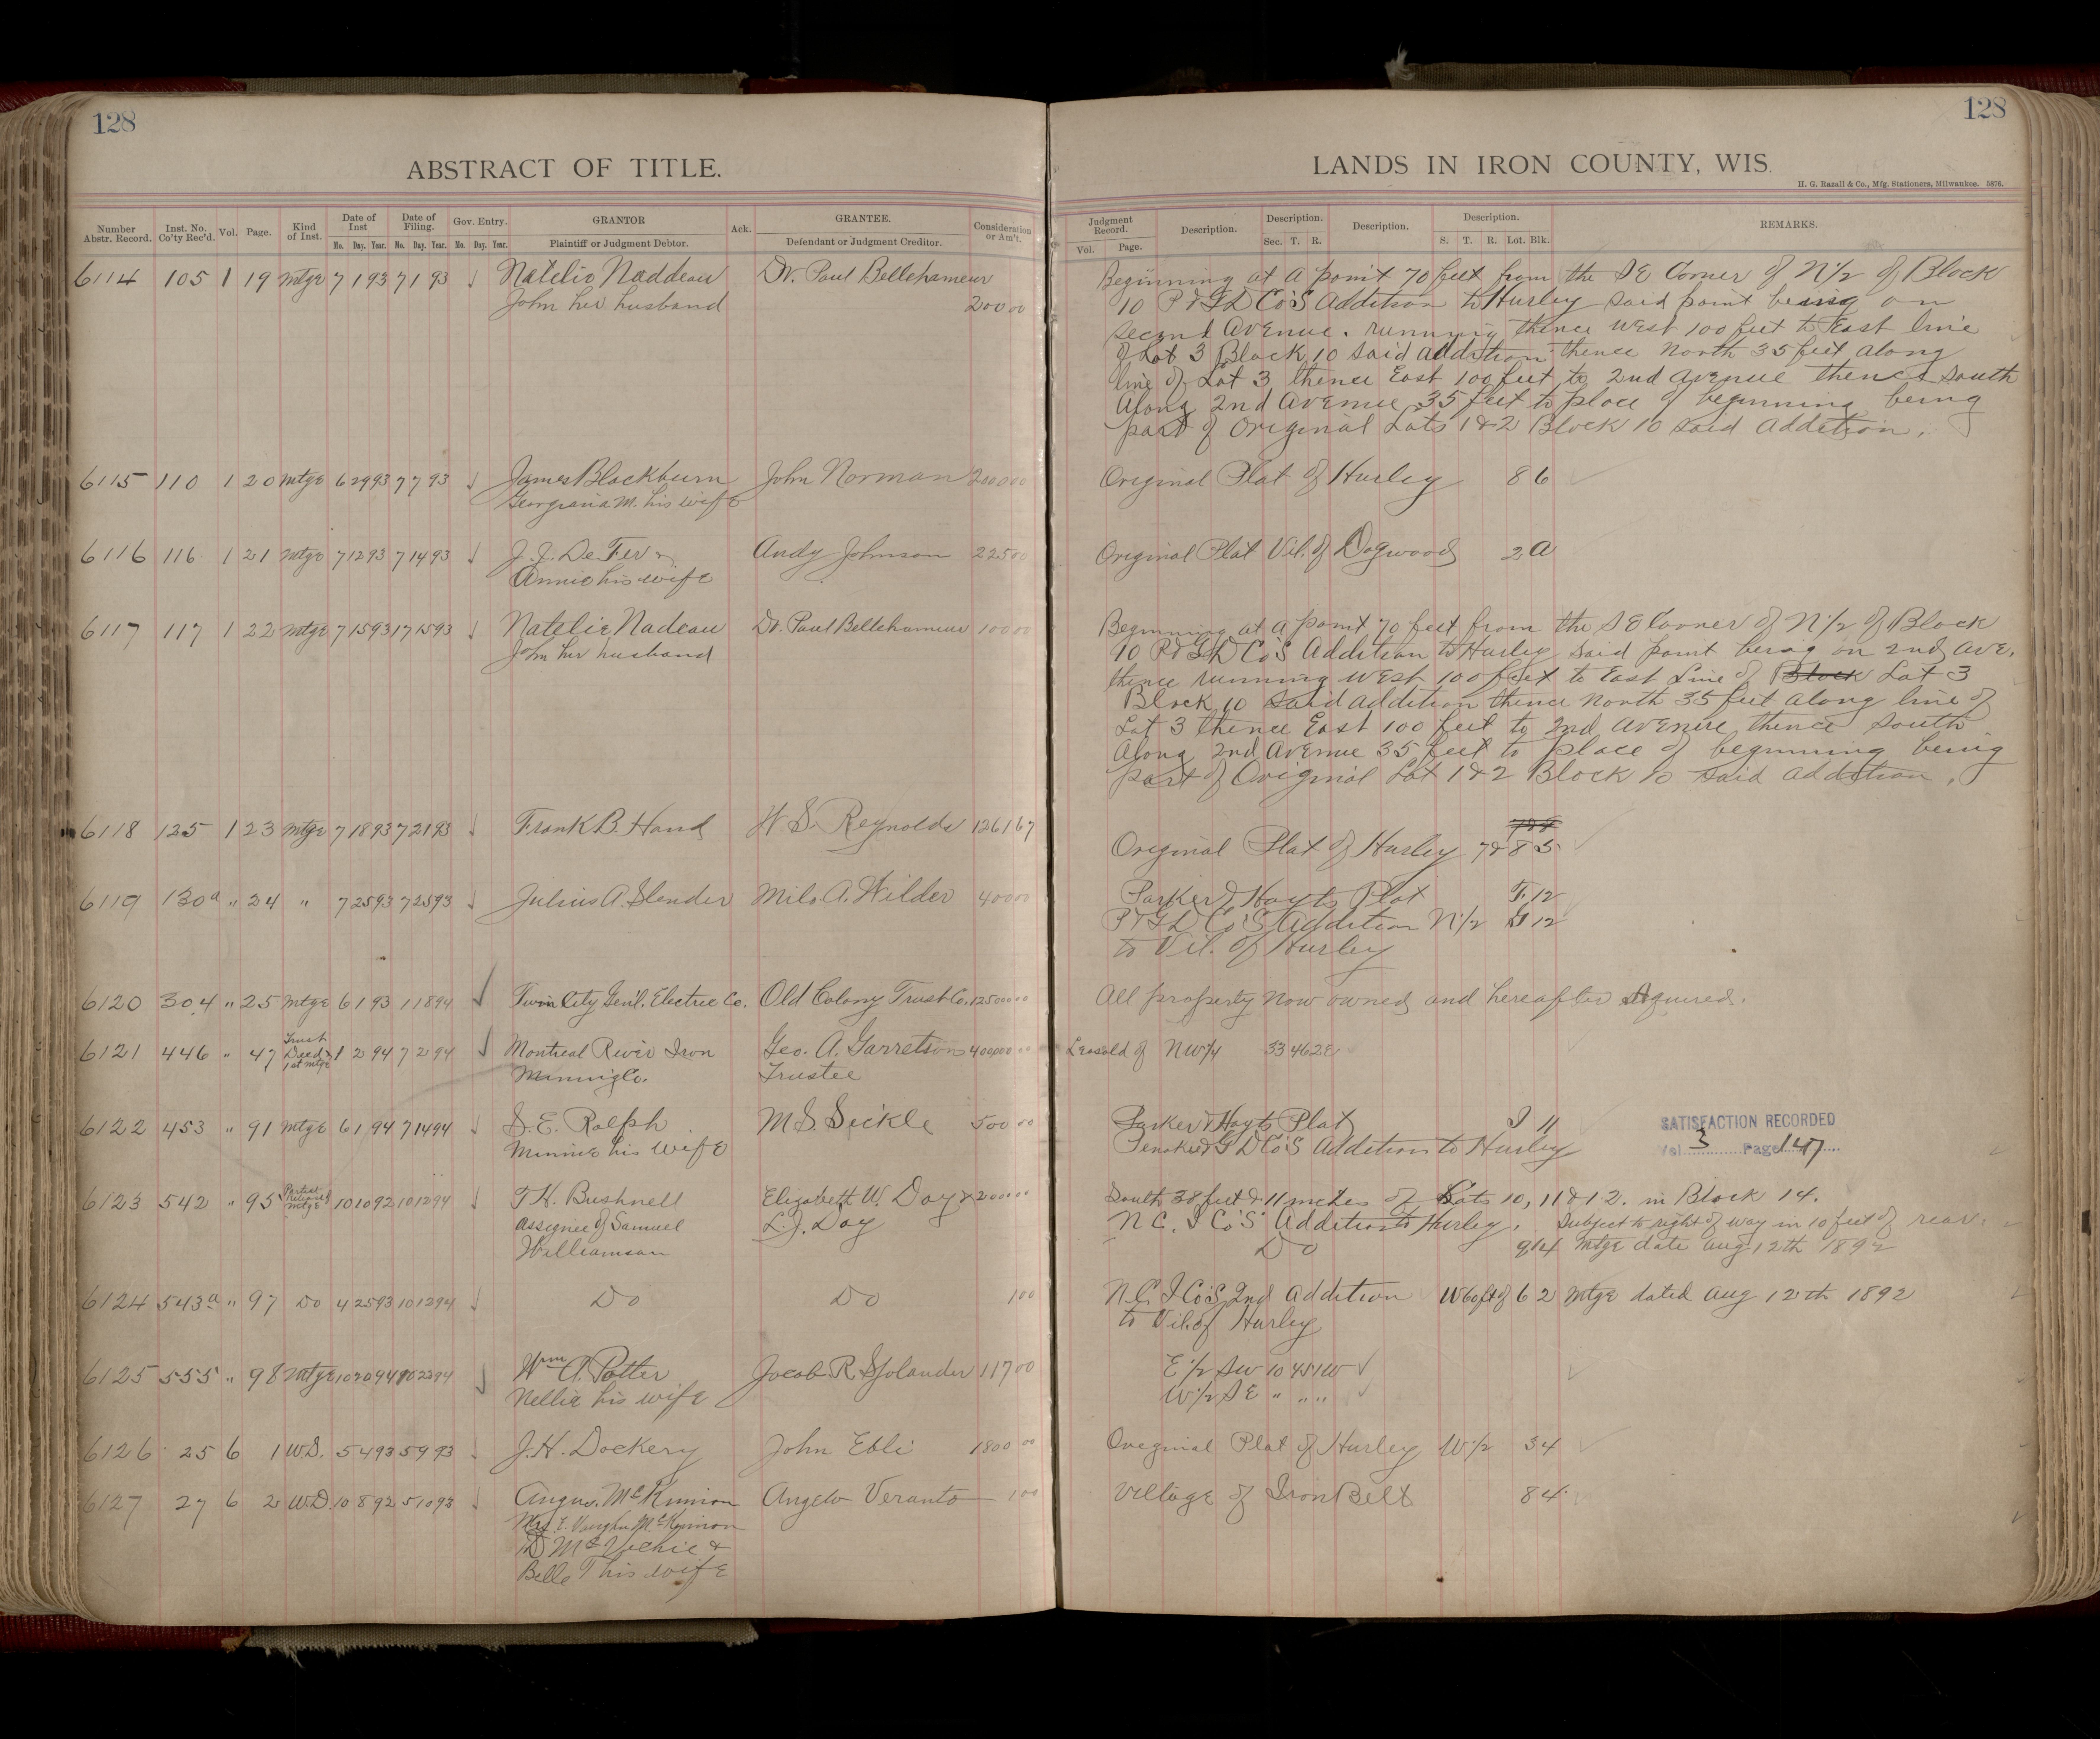 128
128
ABSTRACT OF TITLE.
LANDS IN IRON COUNTY, WIS.
H. G. Razall & Co., Mfg. Stationers, Milwaukee. 5876.
Number Abstr. Record. Inst. No. Co'ty Rec'd. Vol. Page. Kind of Inst. Date of Inst Mo. Day. Year. Date of Filing. Mo. Day. Year. Gov. Entry. Mo. Day. Year. GRANTOR Plaintiff or Judgment Debtor. Ack. GRANTEE. Defendant or Judgment Creditor. Consideration or Am't.
Judgment Record. Vol. Page. Description. Description. Sec. T. R. Description. Description. S. T. R. Lot. Blk. REMARKS.
6114 105 1 19 Mtge 7 1 93 7 1 93 Natelie Naddeau Dr. Paul Bellehameur
John her husband 200 00
Beginning at a point 70 feet from the SE Corner of N 1/2 of Block
10 P & G D Co's Addition to Hurley said point being on
second Avenue. running thence West 100 feet to East line
of Lot 3 Block 10 said addition thence North 35 feet along
line of Lot 3 thence East 100 feet to 2nd avenue thence south
along 2nd Avenue 35 feet to place of beginning being
part of Original Lots 1 & 2 Block 10 said addition.
6115 110 1 20 Mtge 6 29 93 7 7 93 James Blackburn John Norman 2000 00 Original Plat of Hurley 8 6
Georgiana M. his wife
6116 116 1 21 Mtge 7 12 93 7 14 93 J. J. De Fer & Andy Johnson 225 00 Original Plat Vil. of Dogwood 2 A
Annie his wife
6117 117 1 22 Mtge 7 15 93 7 15 93 Natelie Nadeau Dr. Paul Bellehameur 100 00
John her husband
Beginning at a point 70 feet from the SE Corner of N 1/2 of Block
10 P & G D Co's Addition to Hurley said point being on 2nd Ave.
thence running West 100 feet to East Line of Block Lot 3
Block 10 said addition thence North 35 feet along line of
Lot 3 thence East 100 feet to 2nd Avenue thence South
along 2nd Avenue 35 feet to place of beginning being
part of Original Lot 1 & 2 Block 10 said addition.
6118 125 1 23 Mtge 7 18 93 7 21 93 Frank B. Hand W. S. Reynolds 1261 67
Original Plat of Hurley 7 & 8 5
6119 130a " 24 " 7 25 93 7 25 93 Julius A. Slender Milo A. Wilder 400 00 Parker & Hoyts Plat F. 12
P & G D Co's Addition N 1/2 G 12
to Vil. of Hurley
6120 304 " 25 Mtge 6 1 93 1 18 94 Twin City Gen'l. Electric Co. Old Colony Trust Co. All property now owned and hereafter Aquired.
6121 446 " 47 Trust Deed & 1st Mtge 1 2 94 7 2 94 Montreal River Iron Geo. A. Garretson 400000 00 Leasold of NW 1/4 33 46 2E
Mining Co. Trustee
6122 453 " 91 Mtge 6 1 94 7 14 94 S. E. Ralph M. S. Sickle 500 00 Parker & Hoyts Plat J 11
Minnie his wife
Penokee & G D Co's Addition to Hurley
SATISFACTION RECORDED
Vol 3 Page 147
6123 542 " 95 Partial Release of Mtge 10 10 92 10 12 94 T. H. Bushnell Elizabeth W. Day & 2000 00 South 38 feet & 11 inches of Lots 10, 11 & 12. in Block 14.
Assignee of Samuel L. J. Day N C. I Co's Addition to Hurley. Subject to right of way in 10 feet of rear.
Williamson Do 9 14 Mtge date Aug 12th 1892
6124 543a " 97 Do 4 25 93 10 12 94 Do Do 1 00 N. C. I Co's 2nd Addition W 60 ft of 6 2 Mtge dated Aug 12th 1892
to Vil. of Hurley
6125 555 " 98 Mtge 10 20 94 10 23 94 Wm A. Potter Jacob R. Sjolander 117 00 E 1/2 SW 10 45 1W
Nellie his wife W 1/2 SE " " "
6126 25 6 1 W.D. 5 4 93 5 9 93 J. H. Dockery John Ebli 1800 00 Original Plat of Hurley W 1/2 3 4
6127 27 6 2 W.D. 10 8 92 5 10 93 Angus McKinnon Angelo Veranto 1 00 Village of Iron Belt 8 4
Mrs. E. Vaughn McKinnon
D McVichie &
Belle T his wife